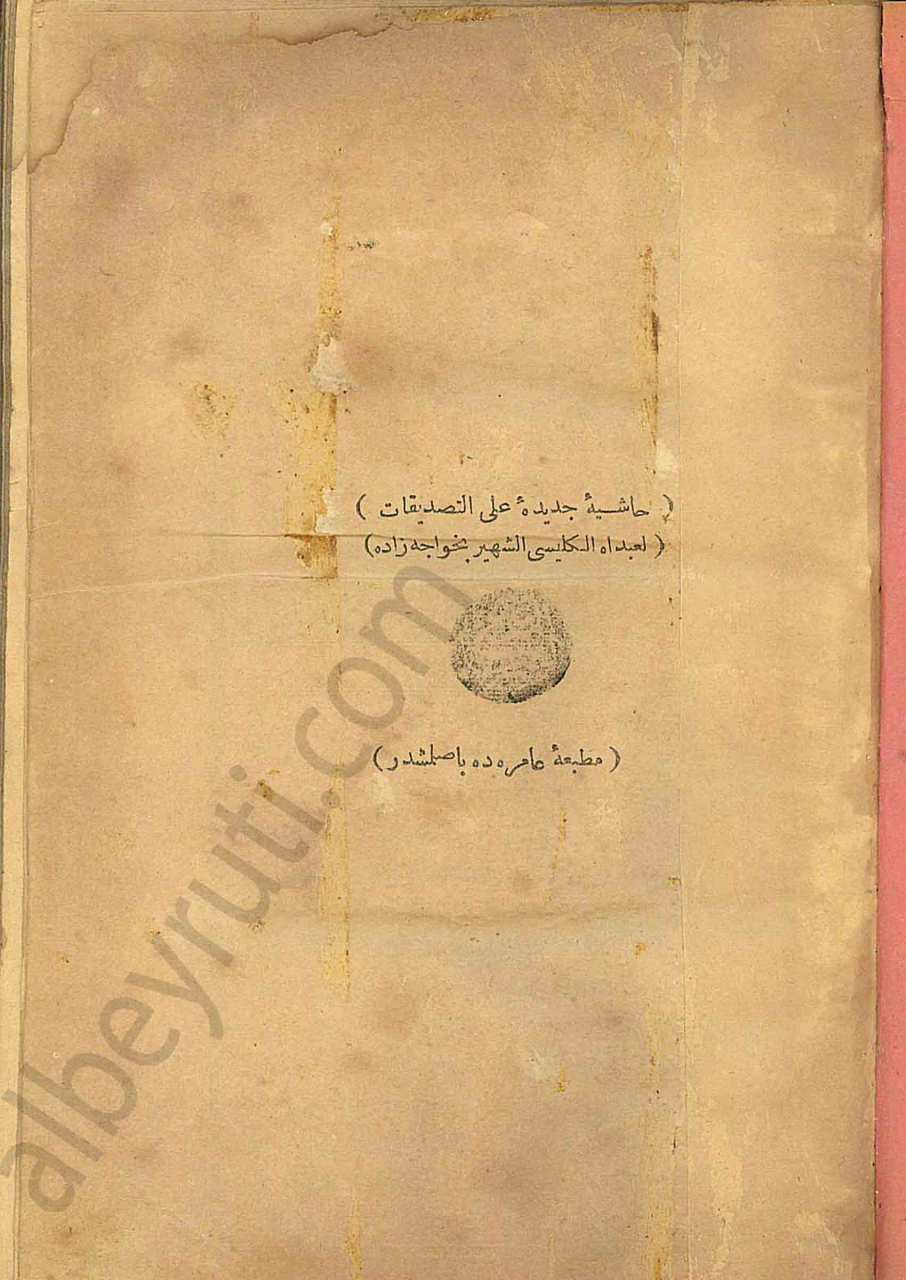 ( حاشیهٔ جدیدهٔ علی التصدیقات )
( لعبداه الکلیسی الشهیر بخواجه زاده )
( مطبعهٔ عامره ده باصلمشدر )
albeyruti.com